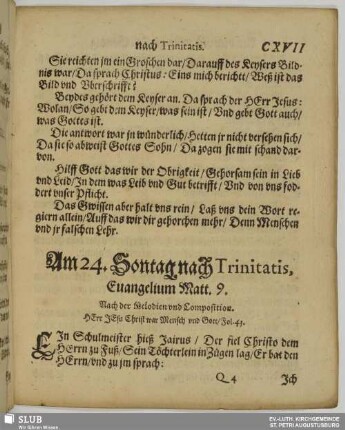 nach Trinitatis. CXVII
Sie reichten jm ein Groschen dar/ Darauff des Keysers Bild-
nis war/ Da sprach Christus: Eins mich bericht/ Weß ist das
Bild vnd Vberschrifft?
Beydes gehört dem Keyser an. Da sprach der HErr Jesus:
Wolan/ So gebt dem Keyser/ was sein ist/ Vnd gebt Gott auch/
was Gottes ist.
Die antwort war jn wünderlich/ Hetten jr nicht versehen sich/
Da sie so abweist Gottes Sohn/ Da zogen sie mit schand dar-
von.
Hilff Gott das wir der Obrigkeit/ Gehorsam sein in Lieb
vnd Leid/ In dem was Leib vnd Gut betrifft/ Vnd von vns fod-
dert vnser Pflicht.
Das Gwissen aber halt vns rein/ Laß vns dein Wort re-
giern allein/ Auff das wir dir gehorchen mehr/ Denn Menschen
vnd jr falschen Lehr.
Am 24. Sontag nach Trinitatis,
Euangelium Matt. 9.
Nach der Melodien vnd Composition.
HErr JEsu Christ war Mensch vnd Gott/ Fol. 43.
EIn Schulmeister hieß Jairus/ Der fiel Christo dem
HErrn zu Fuß/ Sein Töchterlein in Zügen lag/ Er bat den
HErrn/ vnd zu jm sprach:
Q 4 Ich
SLUB
Wir führen Wissen.
EV.-LUTH. KIRCHGEMEINDE
ST. PETRI AUGUSTUSBURG